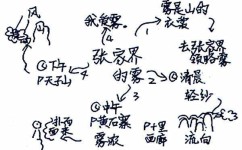 风
我爱雾
雾是山的
衣裳
张家界
的雾
4
1
去张家界
领略雾
④下午
P天子山
2
①清晨
轻纱
3
③中午
P黄石寨
雾液
P十里
画廊
流向